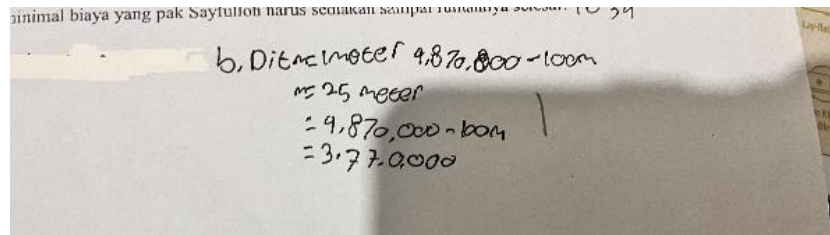 minimal biaya yang pak Saytulloh harus sediakan sampai rumahnya selesai.
b, Dit 4,870,800-100m
= 25 meter
= 4,870,000-100m
= 3.770.000